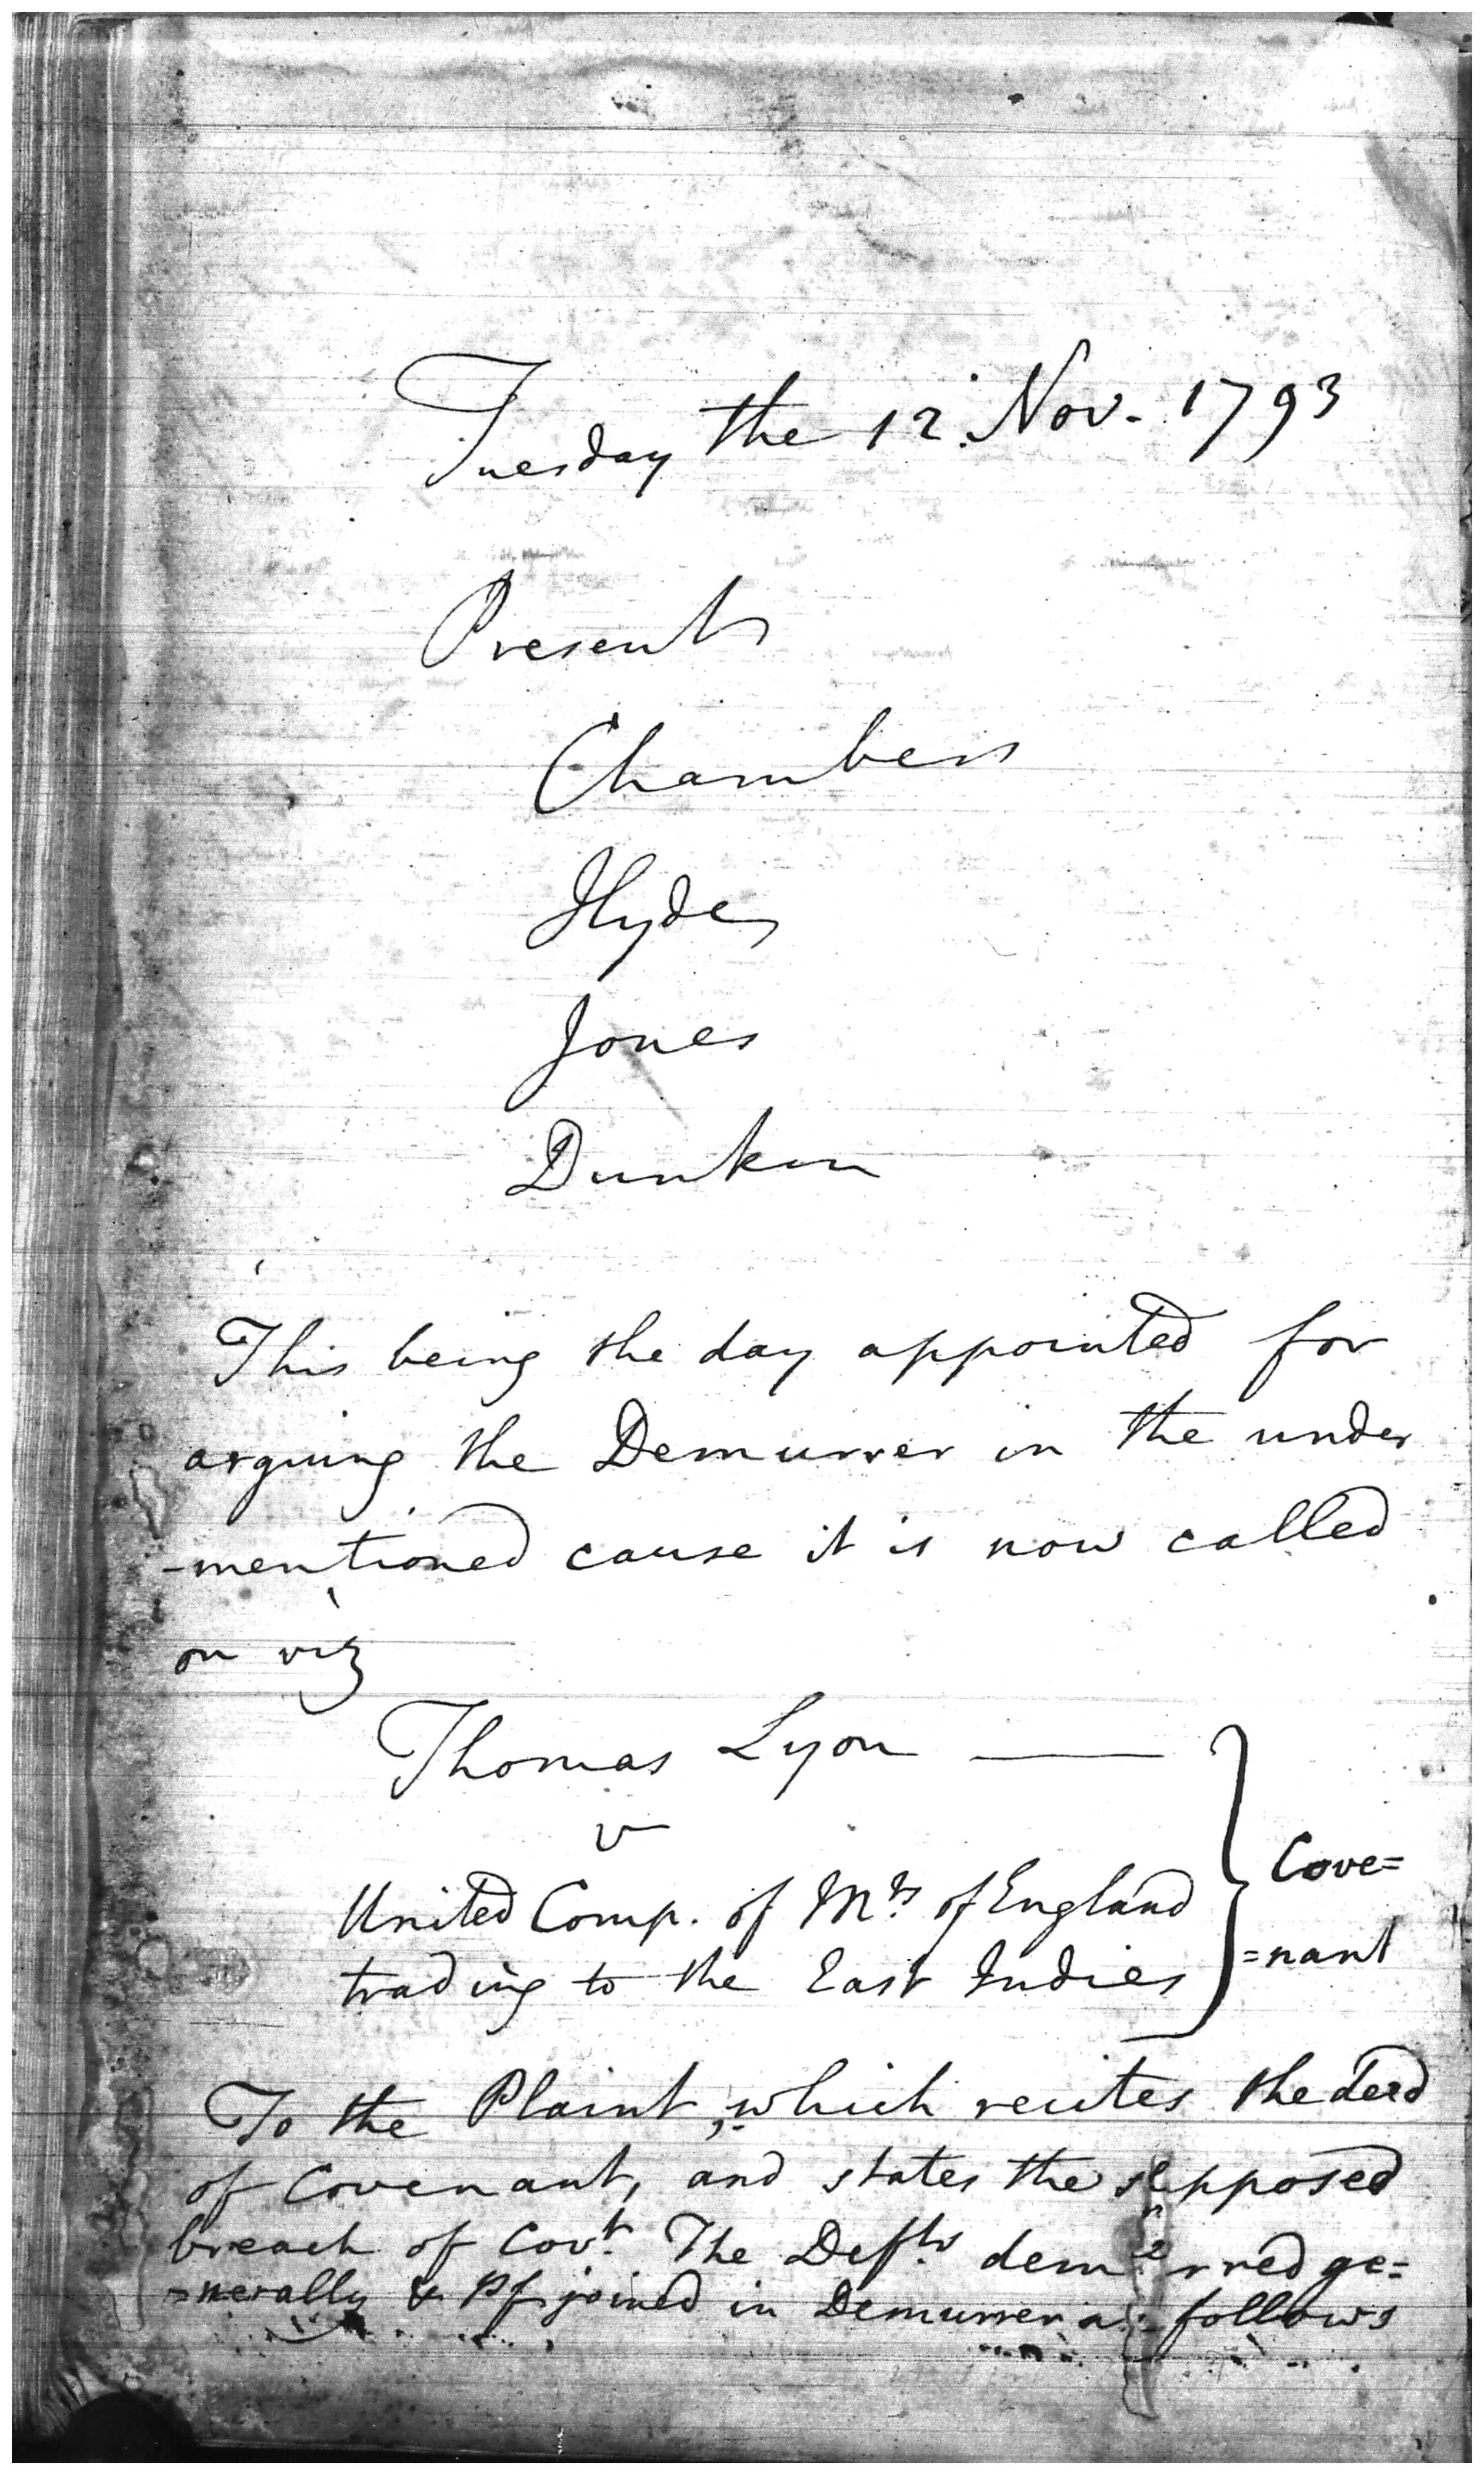 Tuesday the 12. Nov. 1793
Present
Chambers
Hyde
Jones
Dunkin
This being the day appointed for
arguing the Demurrer in the under
-mentioned cause it is now called
on viz
Thomas Lyon
v
United Comp. of Mts. of England
trading to the East Indies
Cove=
=nant
To the Plaint, which recites the deed
of Covenant, and states the supposed
breach of Covt. The Defts. demurred ge=
=nerally & Pf joined in Demurrer as follows